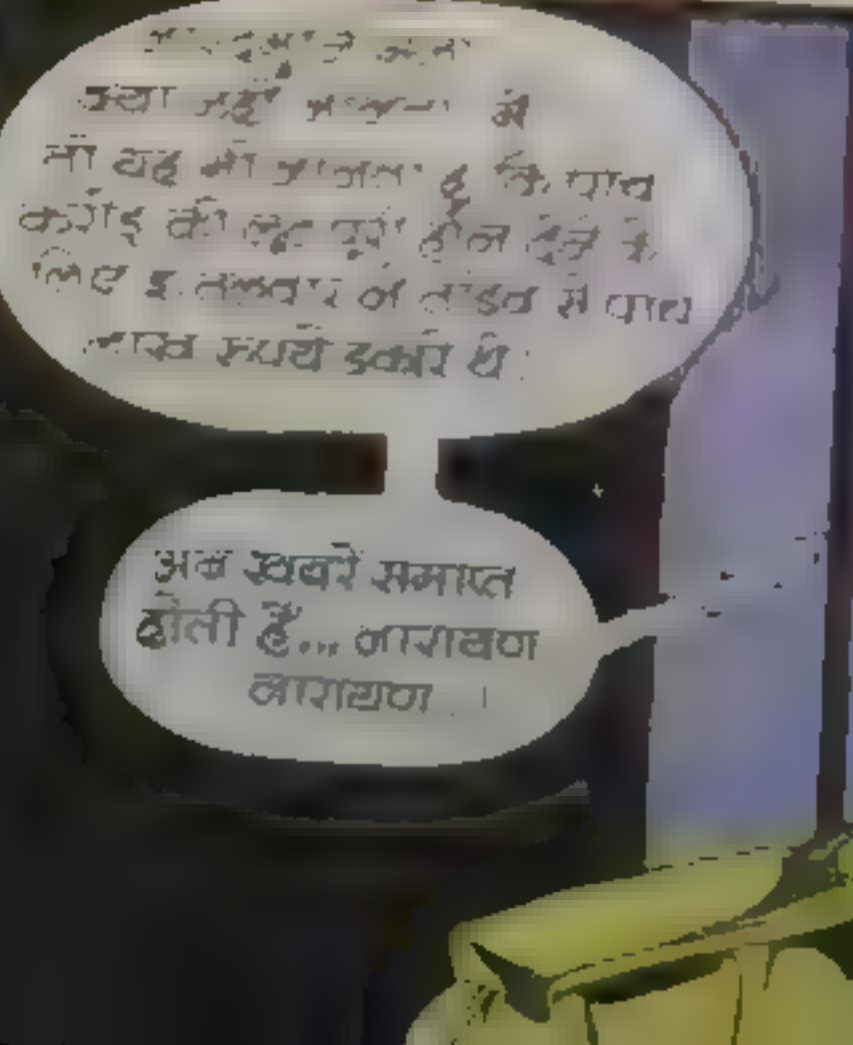 क्या नहीं में
तो यह भी जानता हूं कि पांच
करोड़ की लूट पूरी होने देने के
लिए इ. तलवार ने तांडव से पांच
लाख रुपये डकारे थे
अब खबरें समाप्त
होती हैं... नारायण
नारायण ।